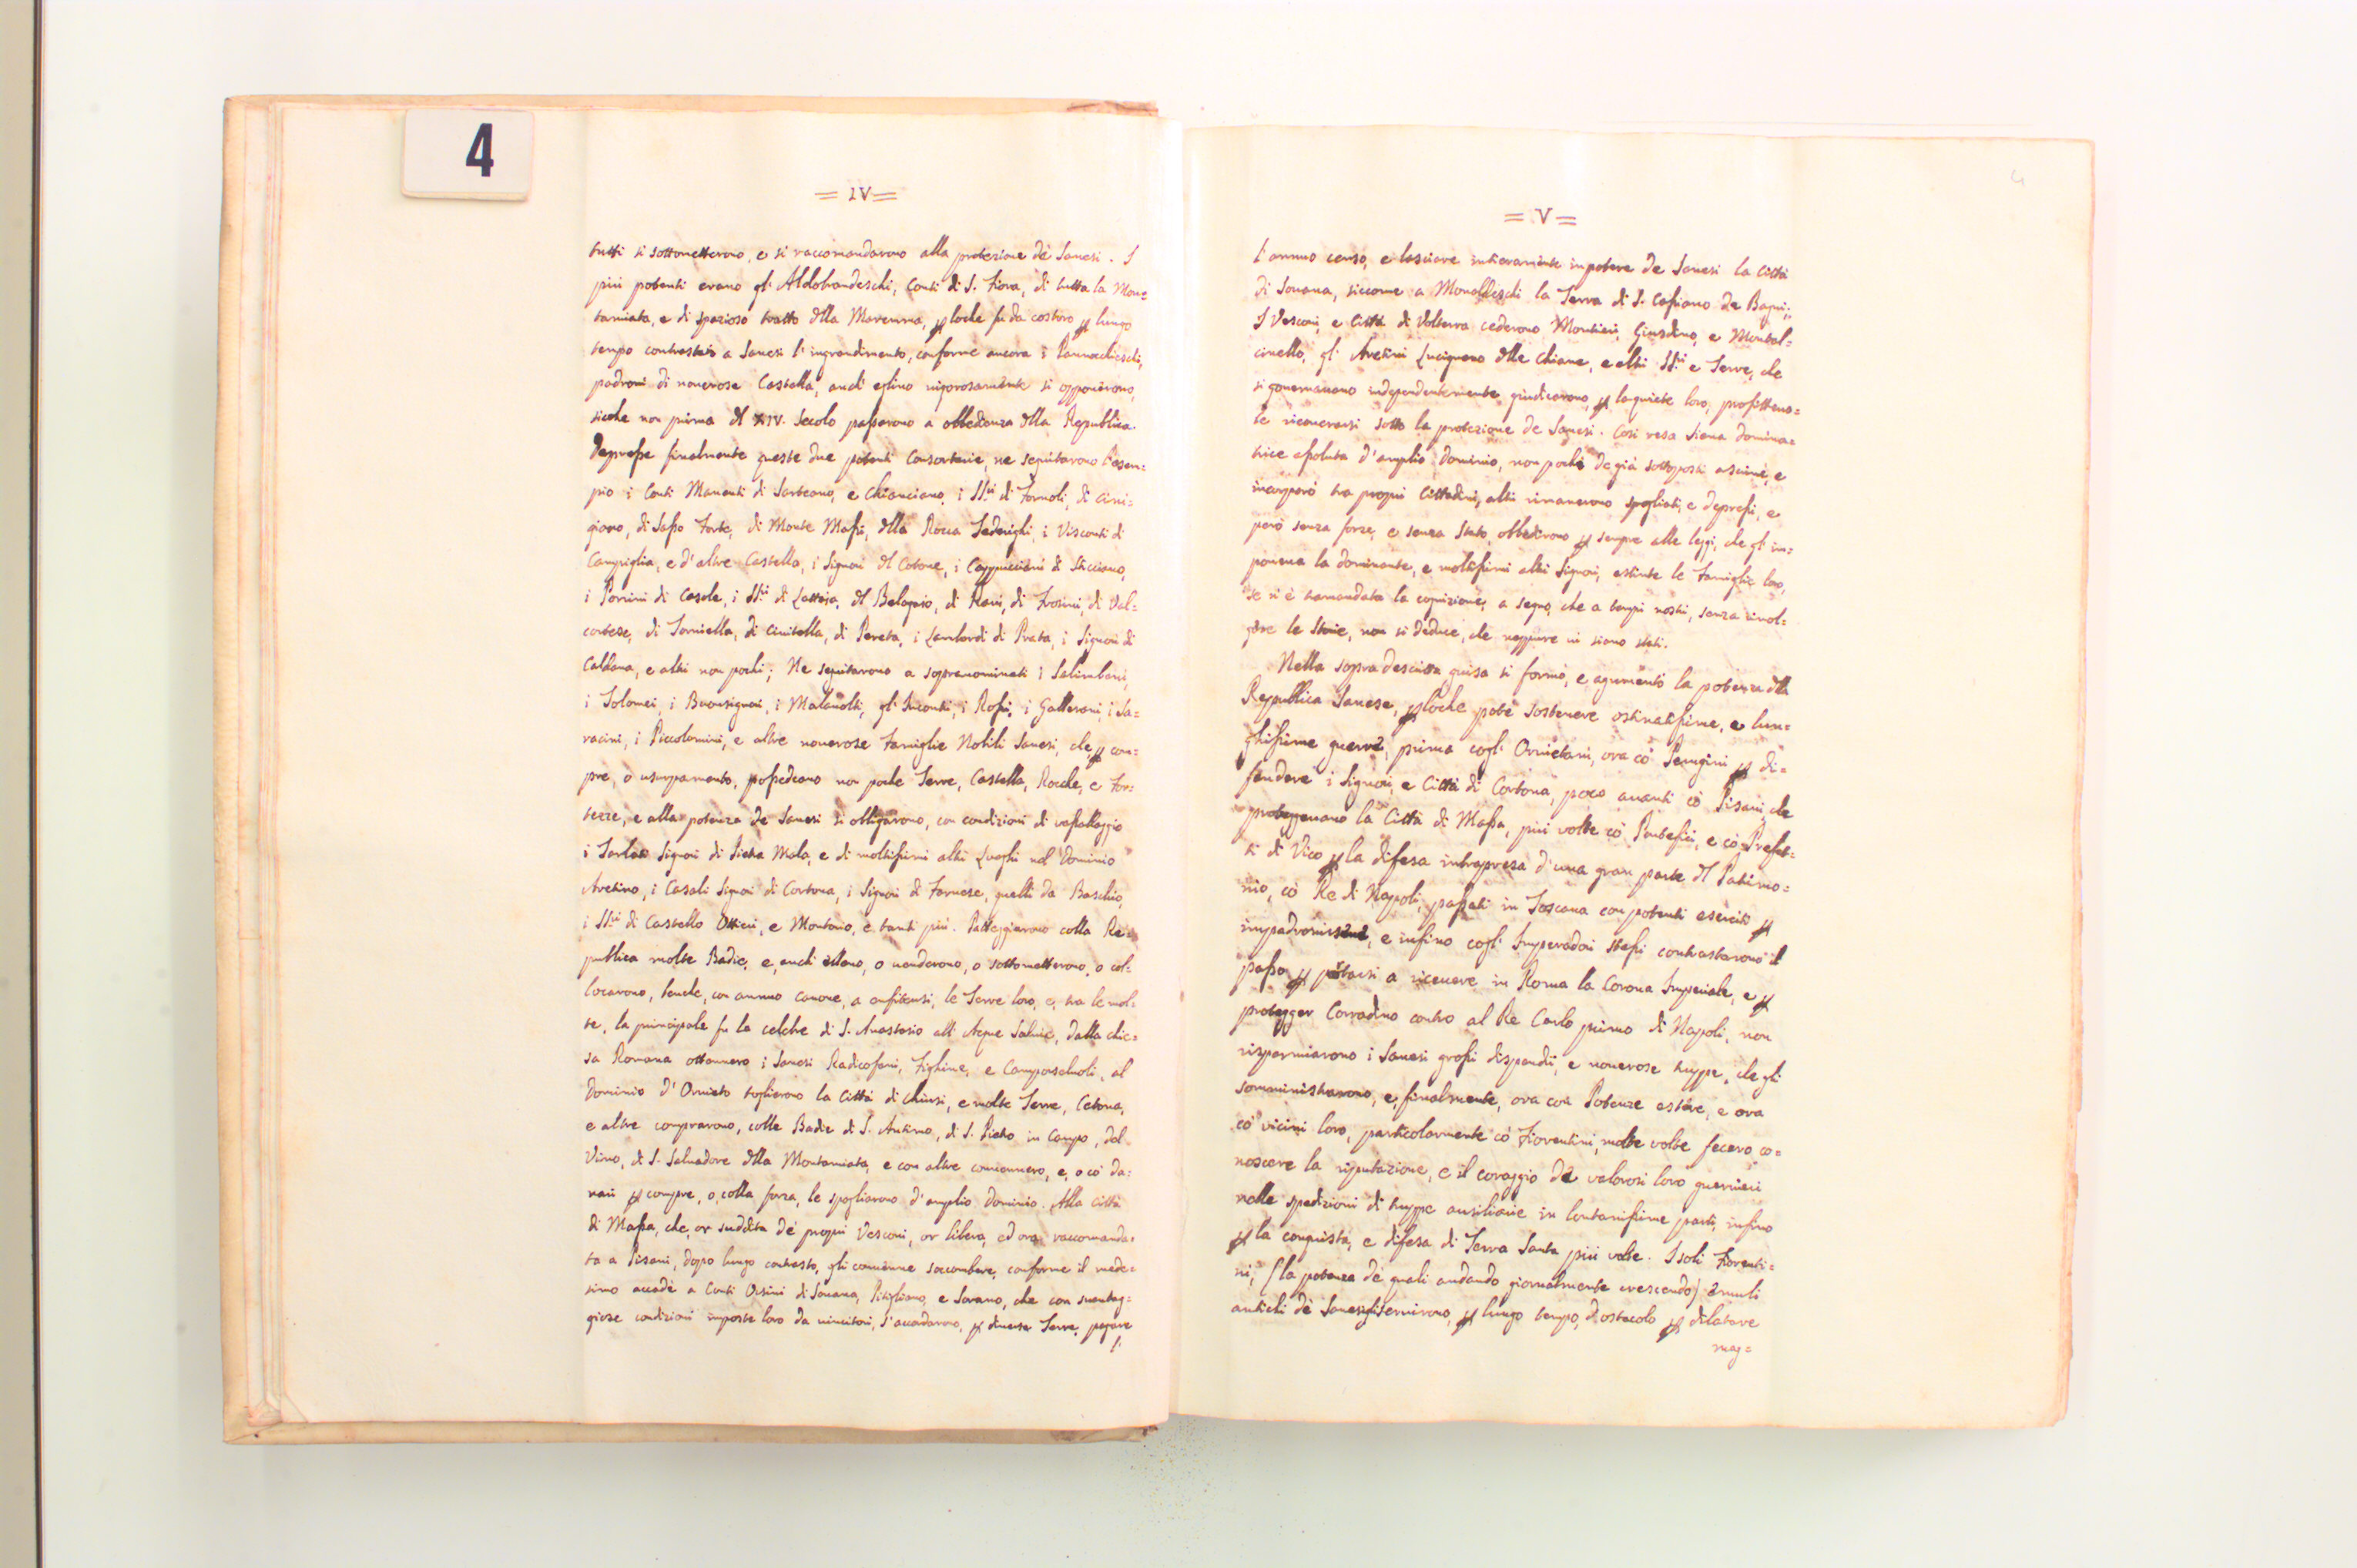 4
= IV =
tutti si sottometterono, e si raccomandarono alla protezione dè Sanesi. I
più potenti erano gl' Aldobrandeschi, Conti di S. Fiora, di tutta la Mon=
tamiata, e di spazioso tratto dlla Maremma, p loche fu da costoro p lungo
tempo contrastato a Sanesi l'ingrandimento, conforme ancora i Pannochieschi,
padroni di nonerose Castella, anch' eglino vigorosamente si opponerono,
siche non prima dl XIV. secolo passarono a obbedienza dlla Republica.
Depresse finalmente queste due potenti Consorterie, ne seguitarono l'esem=
pio i Conti Manenti di Sarteano, e Chianciano, i SSri di Tornoli, di Cini=
giano, di Sasso Forte, di Monte Massi, dlla Rocca Federighi, i Visconti di
Campiglia, e d'altre Castella, i Signori dl Cotone, i Cappucciani di Sticciano,
i Porrini di Casole, i SSri di Lattaja, dl Belagaio, di Ravi, di Frosini, di Val=
cortese, di Torniella, di Civitella, di Pereta, i Lambardi di Prata, i Signori di
Caldana, e altri non pochi; Ne seguitarono a sopranominati i Salimbeni,
i Tolomei, i Buonsignori, i Malavolti, gl' Incontri, i Rossi, i Gallerani, i Sa=
racini, i Piccolomini, e altre nonerose Famiglie Nobili Sanesi, che, p com=
pre, o usurpamento, possedeano non poche Terre, Castella, Rocche, e For=
tezze, e alla potenza de Sanesi si obligarono, con condizioni di vassallaggio
i Tarlati Signori di Pietra Mala, e di moltissimi altri Luoghi nel Dominio
Aretino, i Casali Signori di Cortona, i Signori di Farnese, quelli da Baschio,
i SSri di Castello Ottieri, e Montorio, e tanti più. Patteggiarono colla Re=
publica molte Badie, e, anch' elleno, o venderono, o sottometterono, o col=
locarono, benche, con annuo canone, a enfiteusi, le Terre loro, e, tra le mol=
te, la principale fu la celebre di S. Anastasio all' Acque Salvie, dalla chie=
sa Romana ottennero i Sanesi Radicofani, Fighine, e Camposelvoli, al
Dominio d'Orvieto toglierono la Città di Chiusi, e molte Terre, Cetona,
e altre comprarono, colle Badie di S. Antimo, di S. Pietro in Campo, dal
Vivo, di S. Salvadore dlla Montamiata, e con altre convennero, e, o cò da=
nari p compre, o, colla forza, le spogliarono d'amplio dominio. Alla Città
di Massa, che, or suddita dè propri Vescovi, or libera, ed ora raccomanda=
ta a Pisani, dopo lungo contrasto, gli convenne soccombere, conforme il mede=
simo accadè a Conti Orsini di Sovana, Pitigliano, e Sorano, che con svantag=
giose condizioni imposte loro da vincitori, s'accordarono, p diverse Terre, pagare
l'
4
= V =
l'annuo censo, e lasciare intieramente in potere de Sanesi la Città
di Sovana, siccome a Monaldeschi la Terra di S. Casciano de Bagni;
I Vescovi, e Città di Volterra cederono Montieri, Giusdino, e Montal=
cinello, gl' Aretini Lucignano dlle Chiane, e altri SSri e Terre, che
si governavano independentemente, giudicarono, p la quiete loro, profitteuo=
le ricoverarsi sotto la protezione de Sanesi. Così resa Siena domina=
trice assoluta d'amplio dominio, non pochi de già sottoposti ascrivè, e
incorporò tra propri Cittadini, altri rimanerono spogliati, e depressi, e
però senza forze, e senza Stato, obbedirono p sempre alle leggi, che gl' im=
poneva la dominante, e moltissimi altri Signori, estinte le Famiglie loro,
se n'è tramandata la cognizione, a segno, che a tempi nostri, senza rivol=
gere le Storie, non si deduce, che neppure vi siano stati.
Nella sopra descritta guisa si formò, e agumentò la potenza dlla
Republica Sanese, p loche potè sostenere ostinatissime, e lun=
ghissime guerre, prima cogl' Orvietani, ora cò Perugini p di=
fendere i Signori, e Città di Cortona, poco avanti cò Pisani, che
proteggevano la Città di Massa, più volte cò Pontefici, e cò Prefet=
ti di Vico p la difesa intrapresa d'una gran parte dl Patrimo=
nio, cò Re di Napoli, passati in Toscana con potenti eserciti p
impadronirsene, e infino cogl' Imperadori stessi contrastarono il
passo p portarsi a ricevere in Roma la Corona Imperiale, e p
protegger Corradino contro al Re Carlo primo di Napoli, non
risparmiarono i Sanesi grossi dispendii, e nonerose truppe, che gli
somministrarono, e, finalmente, ora con Potenze estere, e ora
cò vicini loro, particolarmente cò Fiorentini, molte volte fecero co=
noscere la riputazione, e il coraggio de valorosi loro guerrieri
nelle spedizioni di truppe ausiliarie in lontanissime parti, infino
p la conquista, e difesa di Terra Santa più volte. I soli Fiorenti=
ni, (la potenza de quali andando giornalmente crescendo) emuli
antichi dè Sanesi gli servirono, p lungo tempo, d'ostacolo p dilatare
mag=